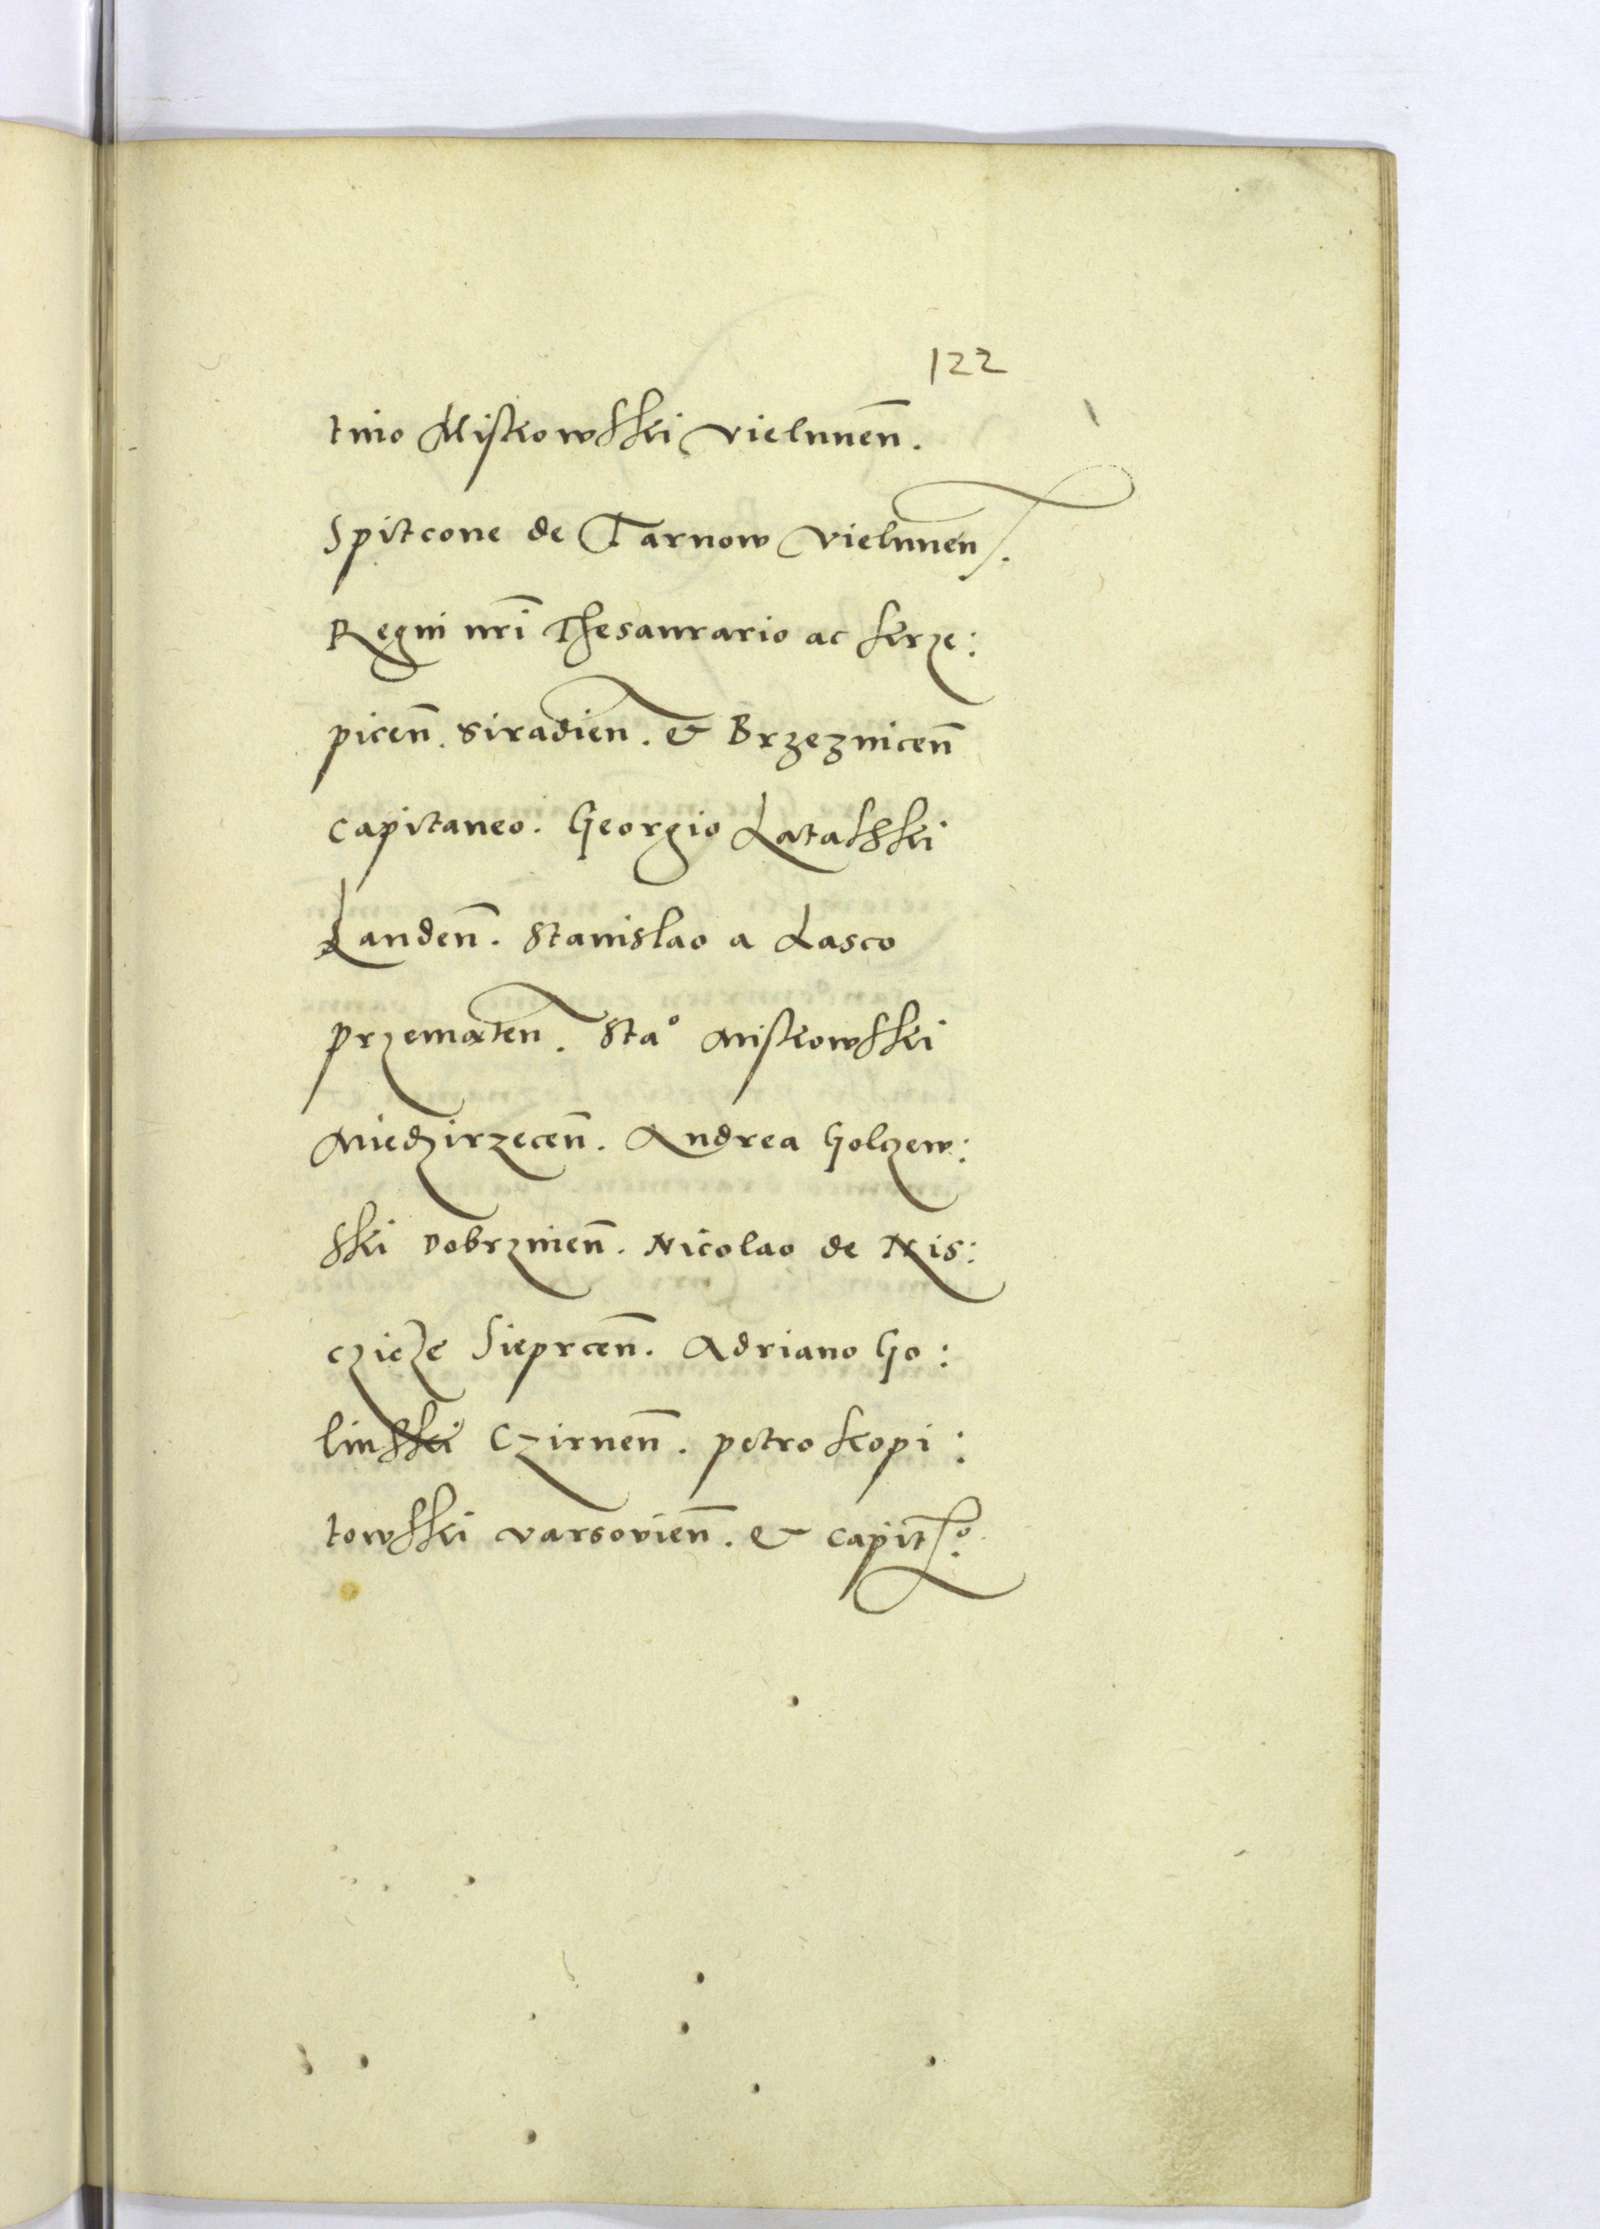 122
tino Miskowsski vielunen̄.
Spitcone de Tarnow vielunen̄.
Regni nrī Thesaurario ac krze:
picen̄. Siradien. & Brzeznicen̄
capitaneo. Georgio Latalsski
Landen̄. Stanislao a Lasco
przematen. Sta° Miskowsski
Miedzirzecen̄. Andrea Golczew:
sski Dobrznien̄. Nicolao de Nis:
czicze Sieprcen̄. Adriano Go:
linsski Czirnen̄. petro kopi:
towsski varsovien̄. & capit°.